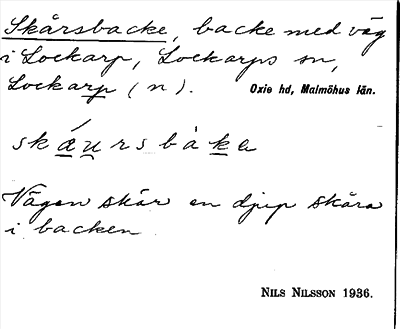 Skårsbacke, backe med väg
i Lockarp, Lockarps sn,
Lockarp (n). Oxie hd, Malmöhus län.
skáursbàka
Vägen skär en djup skåra
i backen
NILS NILSSON 1936.